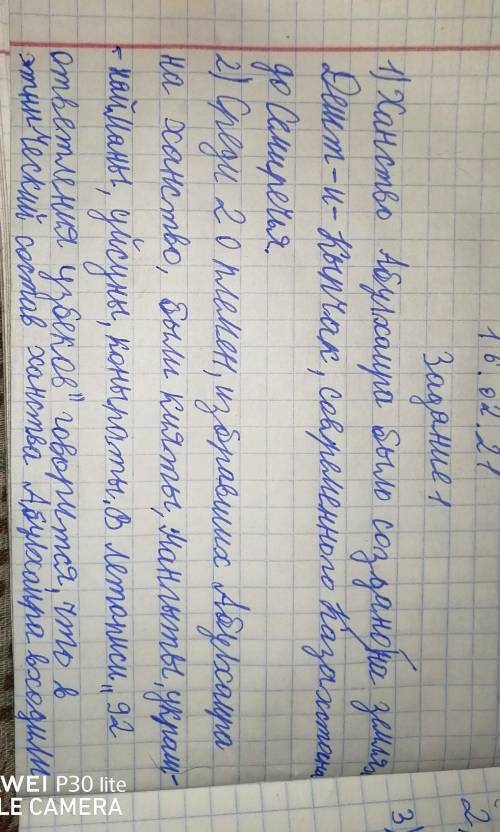 16.02.21
Задание 1
1) Ханство Абулхаира было создано на землях
Дешт-и-Кыпчак, современного Казахстана
до Семиречья.
2) Среди 20 племен, избравших Абулхаира
на ханство, были кияты, мангыты, украш-
-найманы, уйсуны, коныраты. В летописи „92
ответления узбеков" говорится, что в
этнический состав ханства Абулхаира входили
2
3)
HUAWEI P30 lite
TRIPLE CAMERA